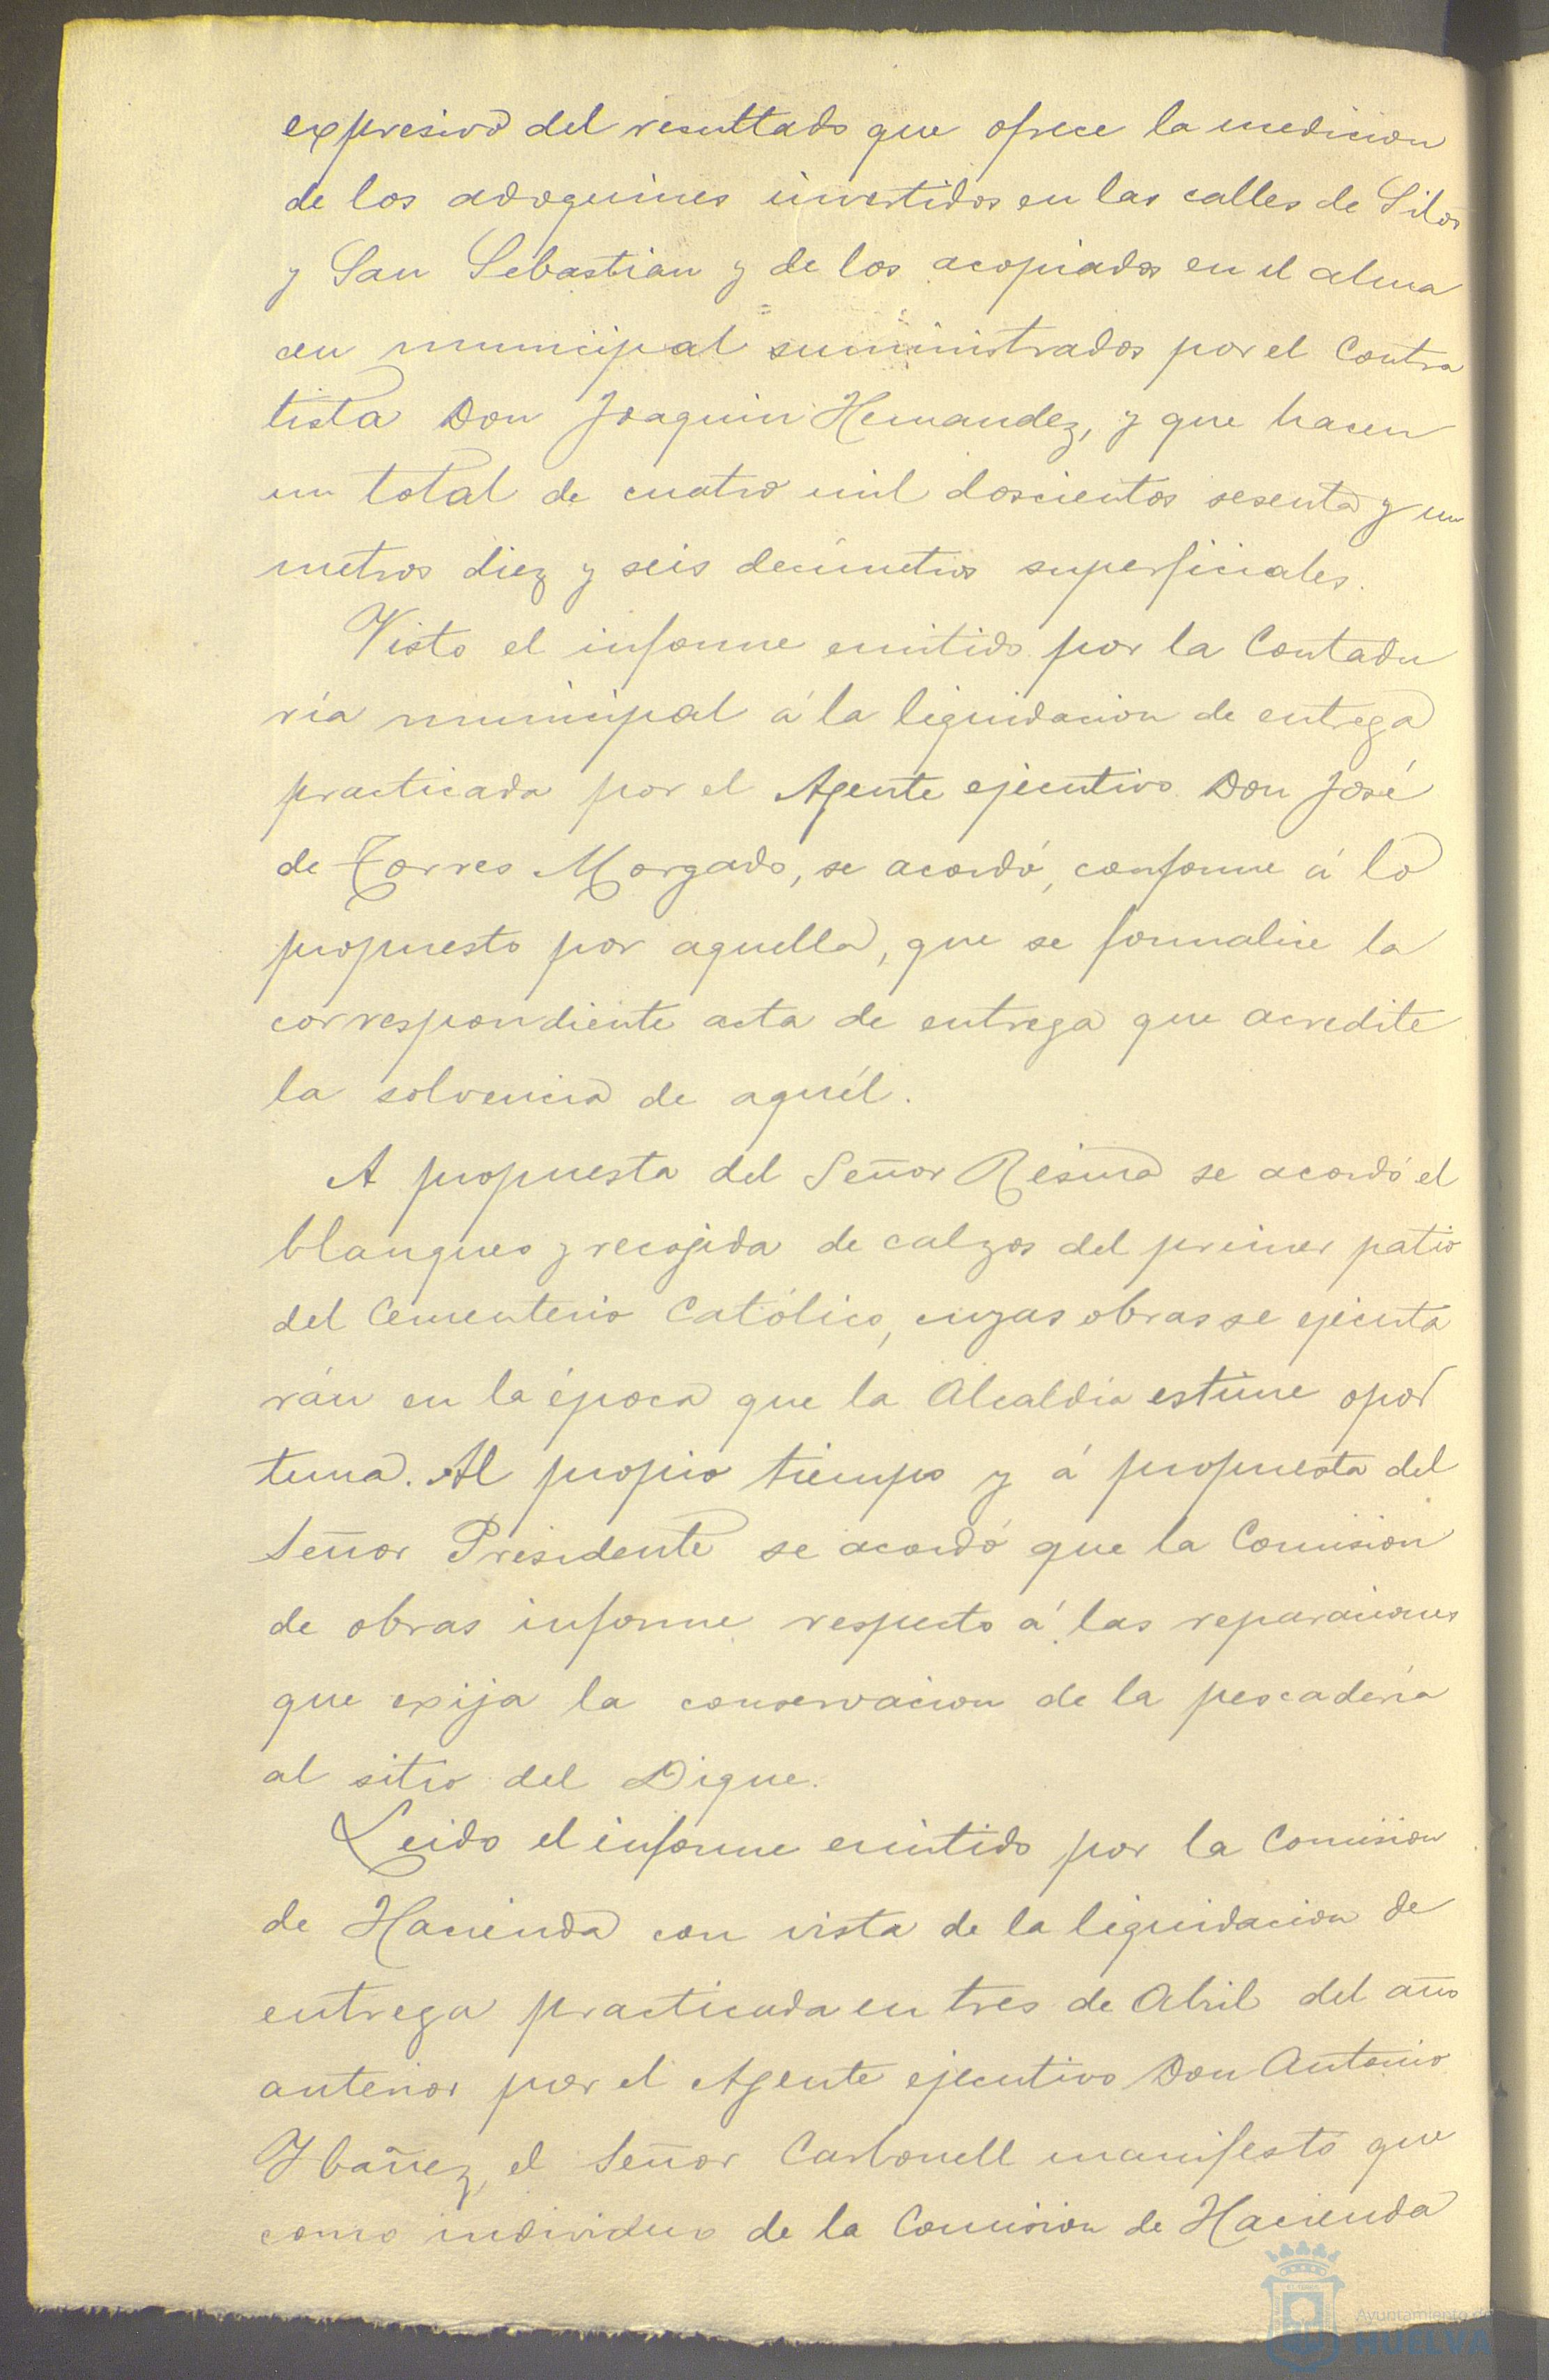 expresivo del resultado que ofrece la medicion
de los adoquines invertidos en las calles de Silos
y San Sebastian y de los acopiados en el alma
cen municipal suministrados por el Contra
tista Don Joaquin Hernandez, y que hacen
un total de cuatro mil doscientos sesenta y un
metros diez y seis decimetros superficiales.
Visto el informe emitido por la Contadu
ría municipal á la liquidacion de entrega
practicada por el Agente ejecutivo Don José
de Torres Morgado, se acordó, conforme á lo
propuesto por aquella, que se formalice la
correspondiente acta de entrega que acredite
la solvencia de aquél.
A propuesta del Señor se acordó el
blanqueo y recojida de calzos del primer patio
del Cementerio Católico, cuyas obras se ejecuta
rán en la época que la Alcaldia estime opor
tuna. Al propio tiempo y á propuesta del
Señor Presidente se acordó que la Comision
de obras informe respecto á las reparaciones
que exija la conservacion de la pescadería
al sitio del Dique.
Leido el informe emitido por la Comision
de Hacienda con vista de la liquidacion de
entrega practicada en tres de Abril del año
anterior por el Agente ejecutivo Don Antonio
Ybañez, el Señor Carbonell manifestó que
como individuo de la Comision de Hacienda
Ayuntamiento de
HUELVA